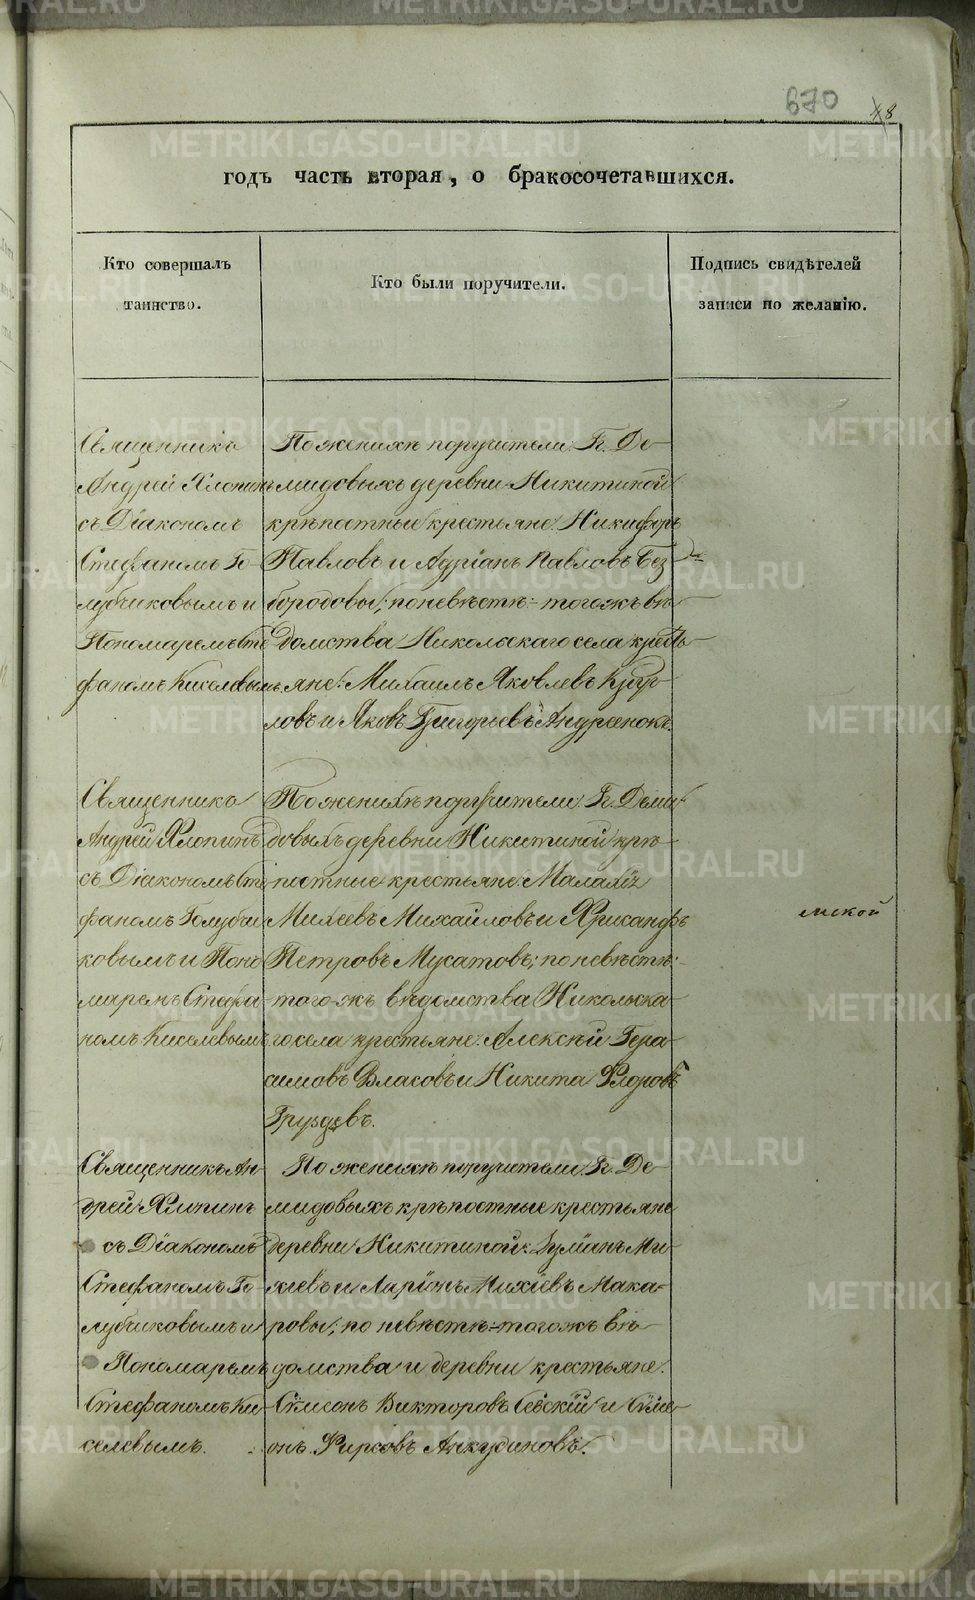 670
48
годъ часть вторая, о бракосочетавшихся.
Кто совершалъ
таинство.
Кто были поручители.
Подпись свидѣтелей
записи по желанію.
Священникъ
Андрей Хлопинъ
съ Діакономъ
Стефаномъ Го-
лубчиковымъ и
Пономаремъ Сте
фаномъ Киселевымъ.
По женихѣ поручители: Гг. Де-
мидовыхъ деревни Никитиной
крѣпостные крестьяне: Никифоръ
Павловъ и Адріанъ Павловъ Без
бородовы; по невѣстѣ: тогожъ вѣ-
домства Никольскаго села кресть-
яне: Михаилъ Яковлевъ
ловъ и Яковъ Григорьевъ
Священникъ
Андрей Хлопинъ
съ Діакономъ Сте
фаномъ Голубчи
ковымъ и Поно
маремъ Стефа
номъ Киселевымъ
По женихѣ поручители: Гг. Деми
довыхъ деревни Никитиной крѣ-
постные крестьяне: Малахій
Михеевъ Михайловъ и Хрисанфъ
Петровъ Мусатовъ; по невѣстѣ:
тогожъ вѣдомства Никольска-
го села крестьяне: Алексѣй Гера-
симовъ Власовъ и Никита Ѳедоровъ
Груздевъ.
Священникъ Ан-
дрей Хлопинъ
съ Діакономъ
Стефаномъ Го-
лубчиковымъ и
Пономаремъ
Стефаномъ Ки-
селевымъ.
По женихѣ поручители: Гг. Де-
мидовыхъ крѣпостные крестьяне
деревни Никитиной: Ми-
хіевъ и Ларіонъ Михіевъ Мака-
ровы; по невѣстѣ: тогожъ вѣ-
домства и деревни крестьяне:
Сѵмеонъ Викторовъ и Сѵме-
онъ Фирсовъ Анкудиновъ.
мской
METRIKI.GASO-URAL.RU